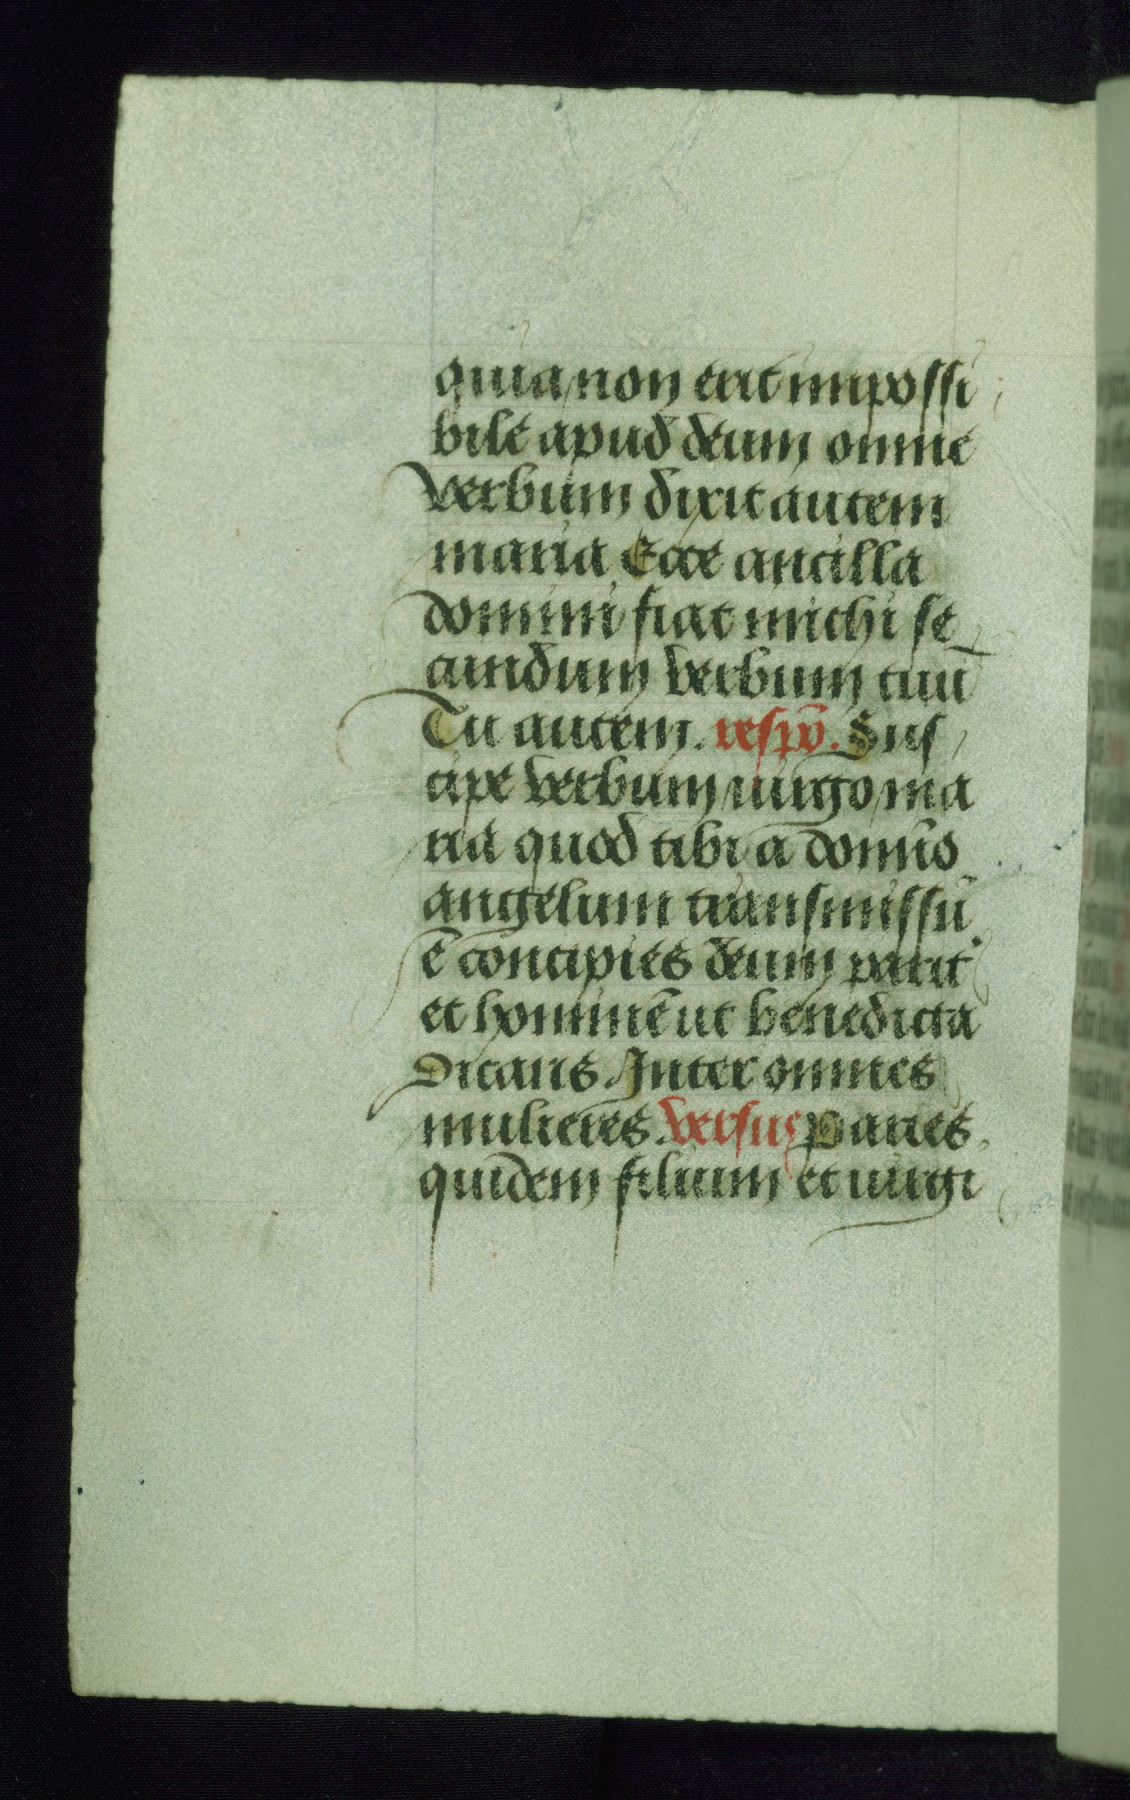 quia non erit impossi
bile apud deum omne
verbum dixit autem
maria Ecce ancilla
domini fiat michi se
cundum verbum tuū
Tu autem. respō. Sus
cipe verbum uirgo ma
ria quod tibi a domīo
angelum transmissū
ē concipies deum parit᷑
et hominē ut benedicta
Dicaris. Inter omnes
mulieres. versus Paries
quidem filium et uirgi